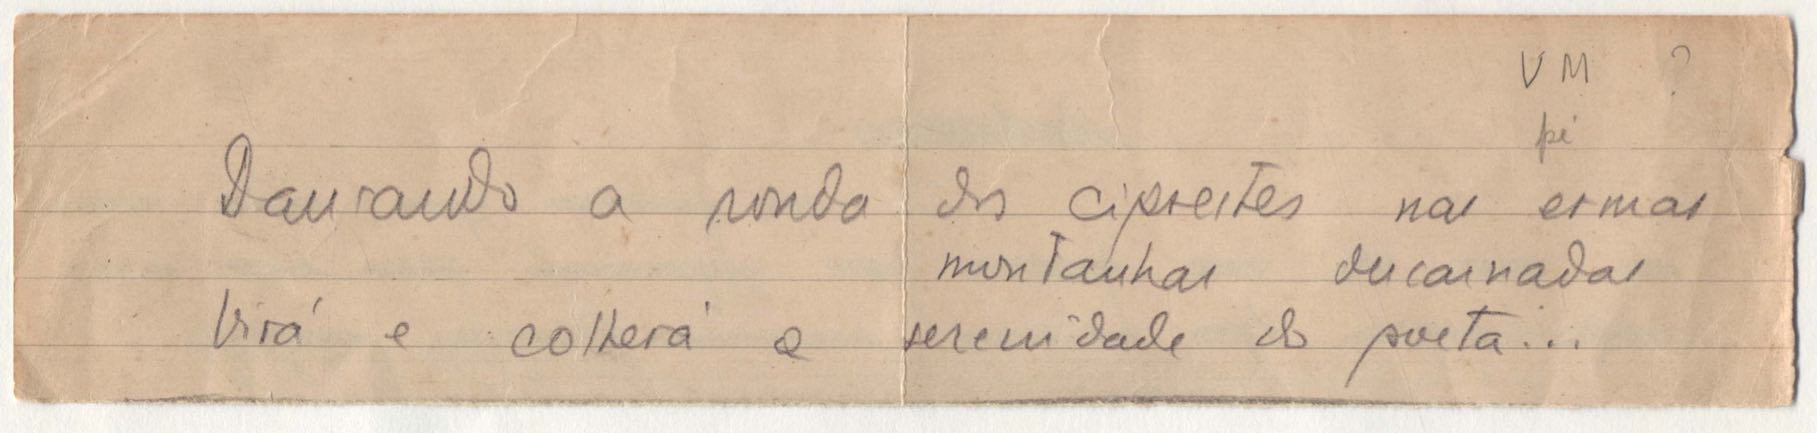 VM ?
pí
Dançando a ronda dos ciprestes nas ermas
montanhas descarnadas
Virá e colherá a serenidade do poeta...